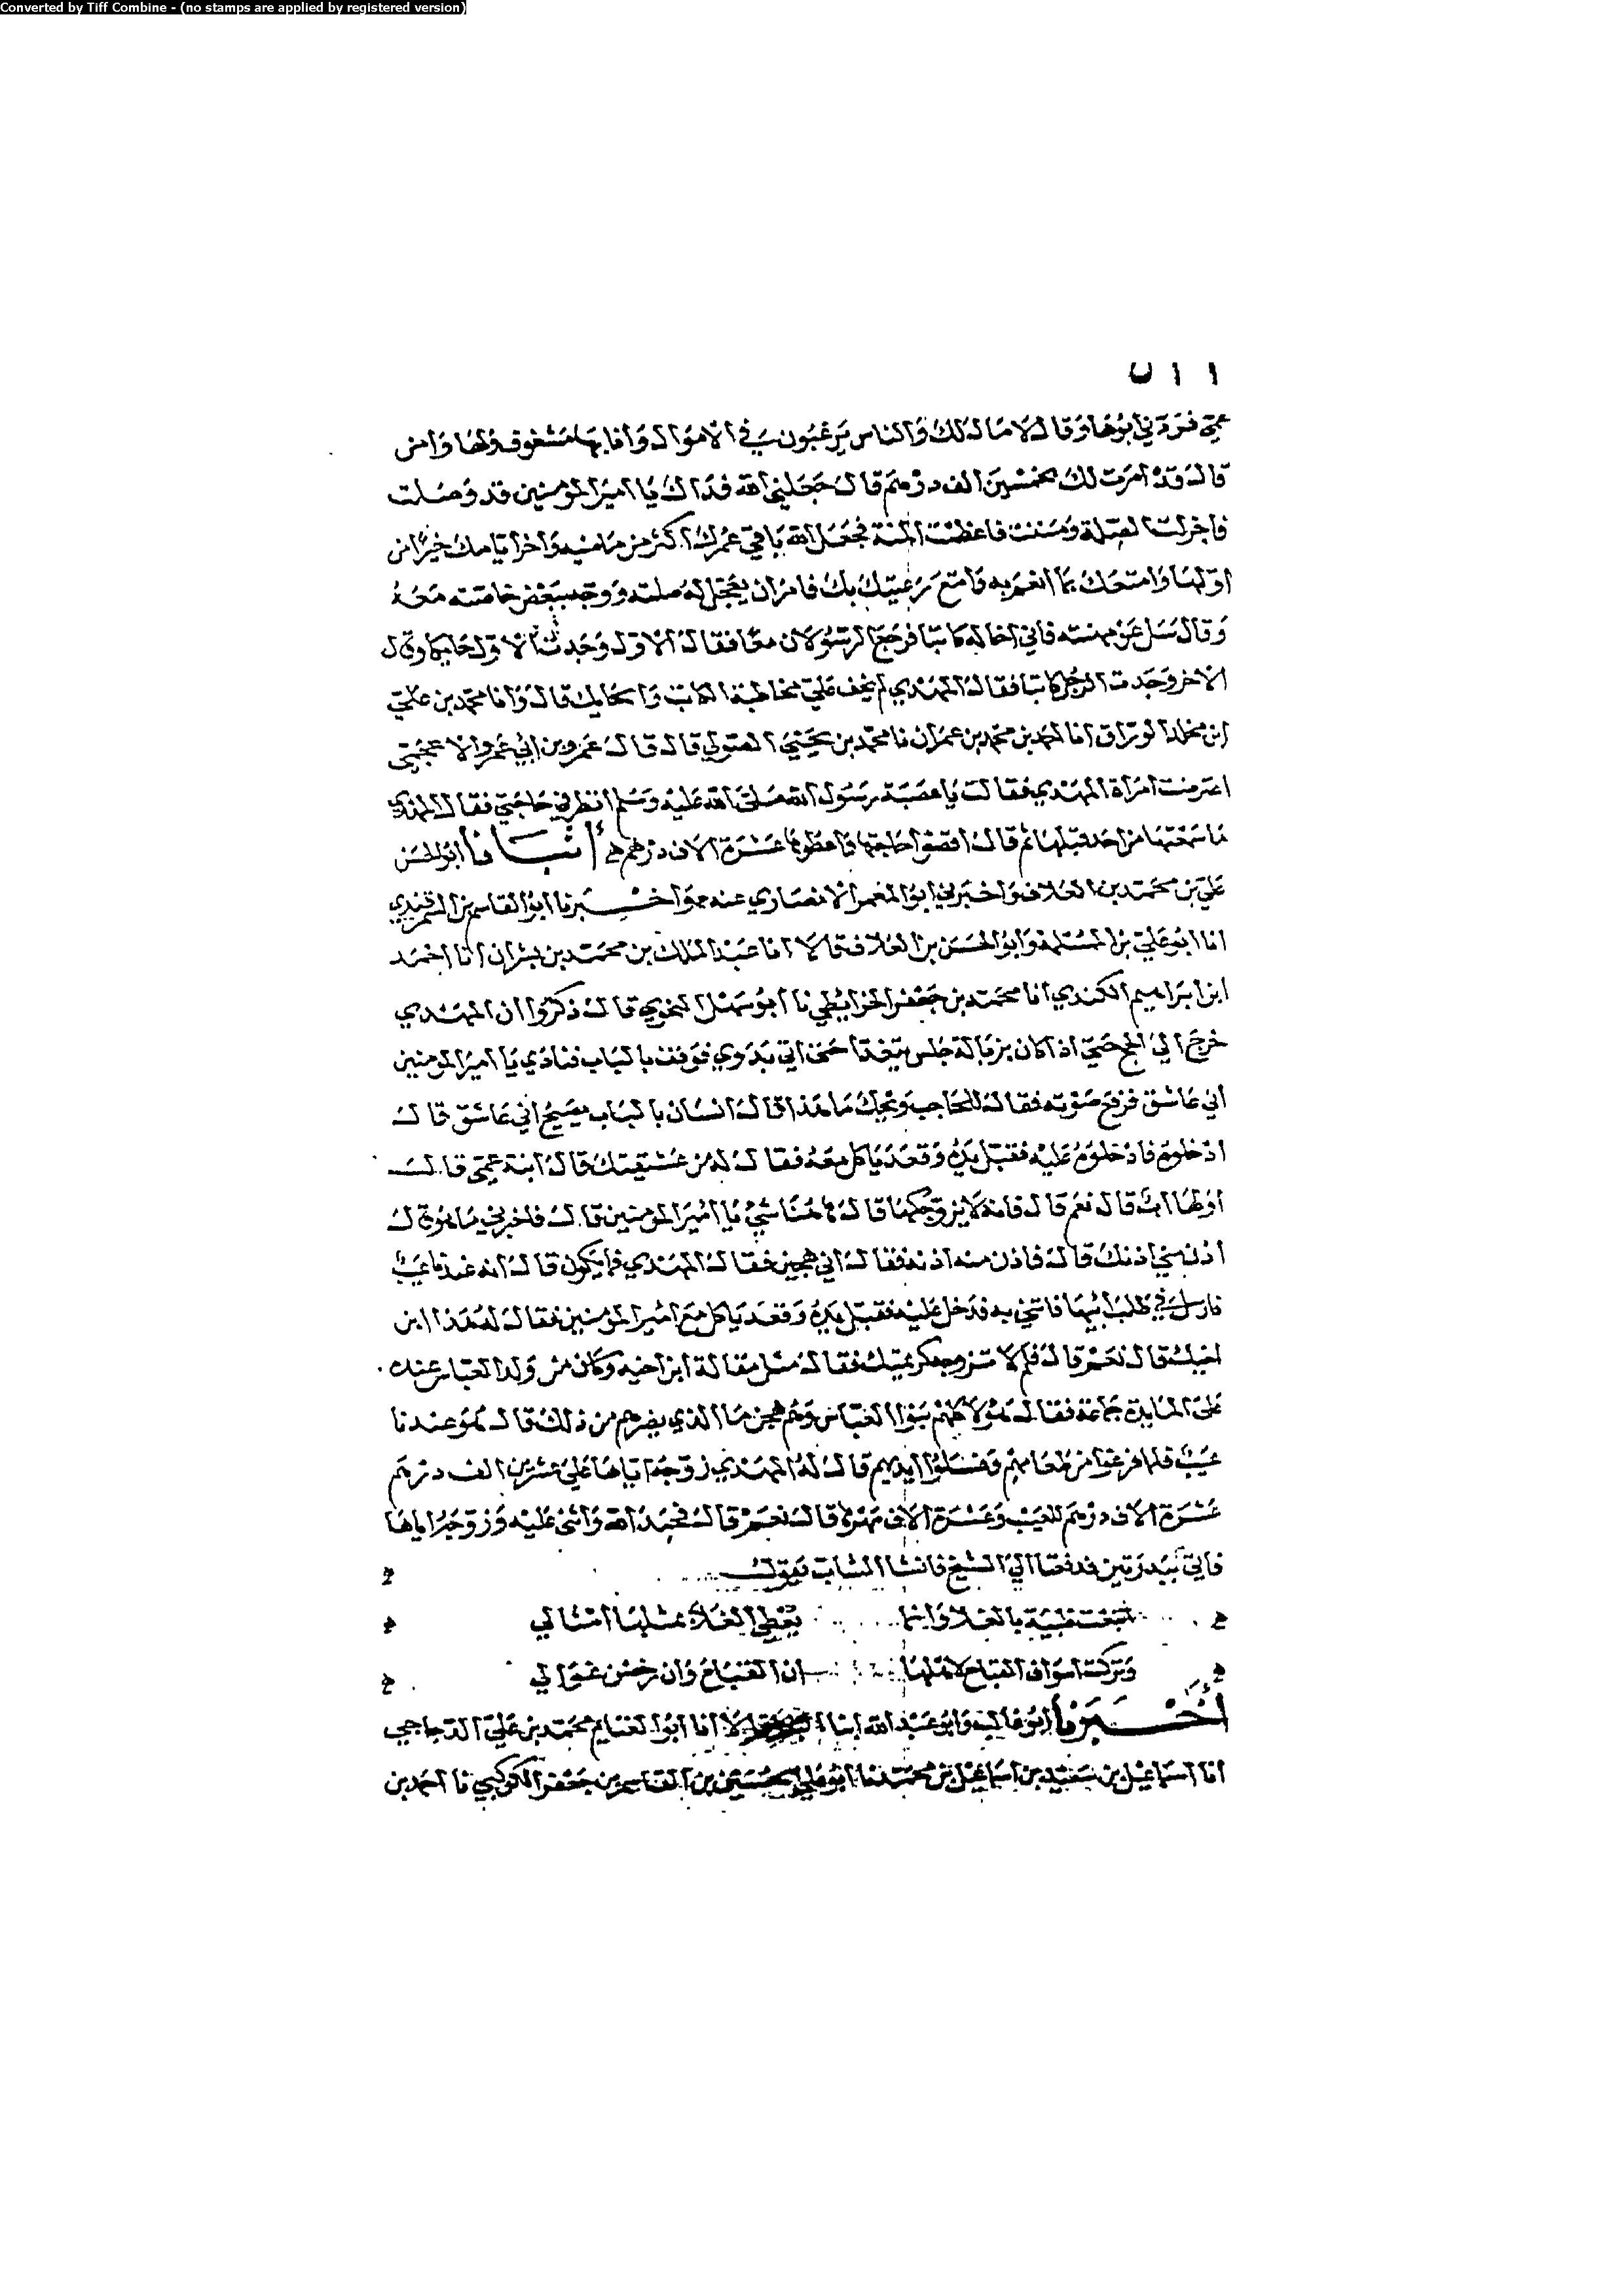 Converted by Tiff Combine - (no stamps are applied by registered version)
٥١١
عمي فردني ابوها وقال لا مال لك والناس يرغبون في الاموال وانا بها مشغوف ولها وامق
قال قد امرت لك بخمسين الف درهم قال جعلني الله فداك يا امير المومنين قد وصلت
فاجزلت الصلة ومننت فاعظمت المنة فجعل الله باقي عمرك اكثر من ماضيه واخر ايامك خيرا من
اولها وامتعك بما انعم به وامتع رعيتك بك فامر ان يعجل له صلته ووجه ببعض خاصته معه
وقال سل عن مهنته فاني اخاله كاتبا فرجع الرسولان معا فقال الاول وجدت الاول حايكا وقال
الاخر وجدت الرجل كاتبا فقال المهدي لم يخف علي مخاطبة الكاتب والحايك قال وانا محمد بن علي
ابن مخلد الوراق انا احمد بن محمد بن عمران نا محمد بن يحيى الصولي قال قال عمرو بن ابي عمرو الاعجمي
اعترضت امراة المهدي فقالت يا عصبة رسول الله صلى الله عليه وسلم انظر في حاجتي فقال المهدي
ما سمعتها من احد قبلها ثم قال اقضوا حاجتها واعطوها عشرة الاف درهم أنبانا ابو الحسن
علي بن محمد بن العلاف واخبرني ابو المعمر الانصاري عنه ح واخبرنا ابو القاسم بن السمرقندي
انا ابو علي بن المسلمة وابو الحسن بن العلاف قالا انا عبد الملك بن محمد بن بشران انا احمد
ابن ابراهيم الكندي انا محمد بن جعفر الخرايطي نا ابو سهل النحوي قال ذكروا ان المهدي
خرج الى الحج حتى اذا كان بزبالة جلس يتغدا حتى اتى بدوي فوقف بالباب فنادى يا امير المومنين
اني عاشق فرفع صوته فقال للحاجب ويحك ما هذا قال انسان بالباب يصيح اني عاشق قال
ادخلوه فادخلوه عليه فقبل يده وقعد ياكل معه فقال له من عشيقتك قال ابنة عمي قال
اولها اب قال نعم قال فما له لا يزوجكها قال هاهنا شي يا امير المومنين قال فاخبرني ما هو قال
ادن مني اذنك قال فاذن منه اذنه فقال اني هجين فقال المهدي فما يكون قال انه عندنا عيب
فارسل في طلب ابيها فاتي به فدخل عليه فقبل يده وقعد ياكل مع امير المومنين فقال له هذا ابن
اخيك قال نعم قال فلم لا تزوجه كريمتك فقال مثل مقالة ابن اخيه وكان من ولد العباس عنده
على المايدة جماعة فقال هولا كلهم بنوا العباس وهم هجن ما الذي يضرهم من ذلك قال هو عندنا
عيب فلما فرغوا من طعامهم وغسلوا ايديهم قال له المهدي زوجه اياها على عشرين الف درهم
عشرة الاف درهم للعيب وعشرة الاف مهرها قال نعم قال فحمد الله واثنى عليه وزوجه اياها
فاتي ببدرتين فدفعتا الى الشيخ فانشا الشاب يقول
ابتعت ظبية بالغلا وانما يعطي الغلا بمثلها امثالي
وتركت اسواق القباح لاهلها ان القباح وان رخصن غوالي
أخبرنا ابو غالب وابو عبد الله ابنا البنا قالا انا ابو الغنايم محمد بن علي الدجاجي
انا اسماعيل بن سعيد بن اسماعيل بن محمد نا ابو علي الحسين بن القاسم بن جعفر الكوكبي نا احمد بن